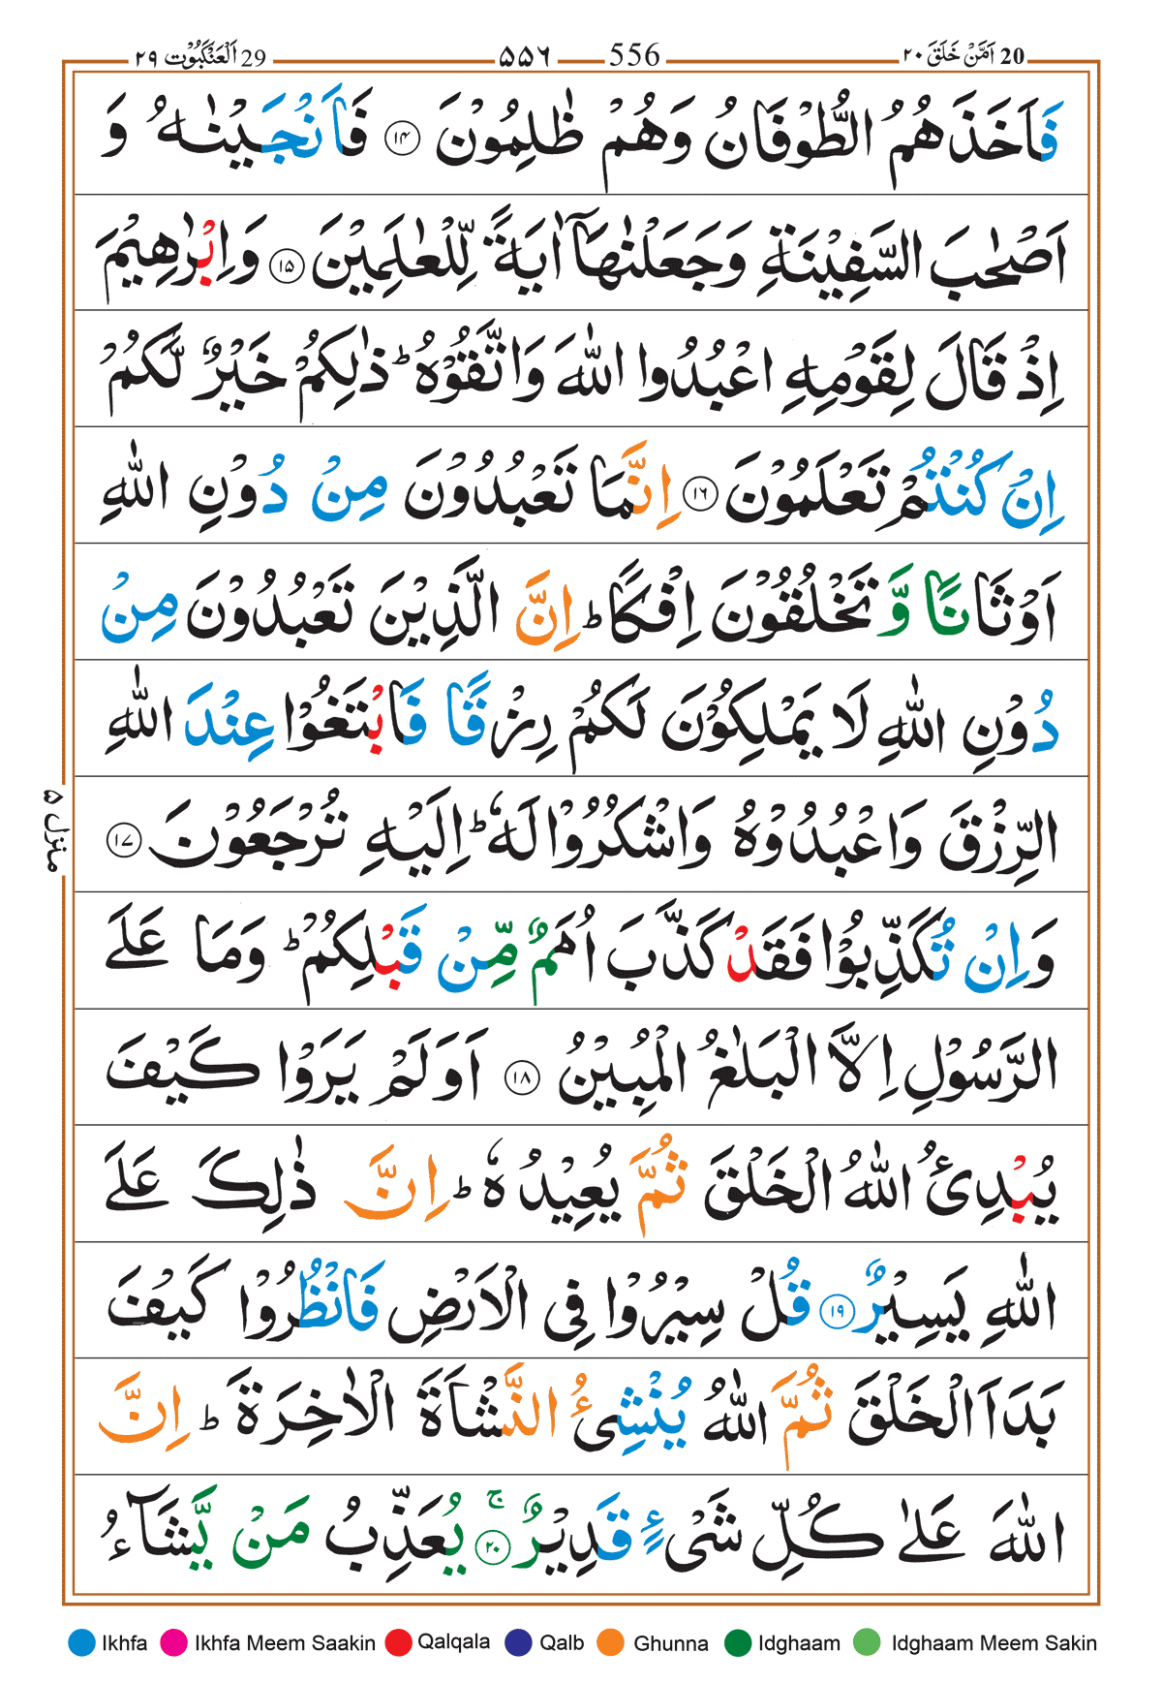 20 اَمَّنْ خَلَقَ ٢٠ 556 ۵۵٦ 29 اَلْعَنْكَبُوْت ٢٩
فَاَخَذَهُمُ الطُّوْفَانُ وَهُمْ ظٰلِمُوْنَ ۝۱۴ فَاَنْجَيْنٰهُ وَ
اَصْحٰبَ السَّفِيْنَةِ وَجَعَلْنٰهَآ اٰيَةً لِّلْعٰلَمِيْنَ ۝۱۵ وَاِبْرٰهِيْمَ
اِذْ قَالَ لِقَوْمِهِ اعْبُدُوا اللّٰهَ وَاتَّقُوْهُ ؕ ذٰلِكُمْ خَيْرٌ لَّكُمْ
اِنْ كُنْتُمْ تَعْلَمُوْنَ ۝۱۶ اِنَّمَا تَعْبُدُوْنَ مِنْ دُوْنِ اللّٰهِ
اَوْثَانًا وَّ تَخْلُقُوْنَ اِفْكًا ؕ اِنَّ الَّذِيْنَ تَعْبُدُوْنَ مِنْ
دُوْنِ اللّٰهِ لَا يَمْلِكُوْنَ لَكُمْ رِزْقًا فَابْتَغُوْا عِنْدَ اللّٰهِ
الرِّزْقَ وَاعْبُدُوْهُ وَاشْكُرُوْا لَهٗ ؕ اِلَيْهِ تُرْجَعُوْنَ ۝۱۷
وَاِنْ تُكَذِّبُوْا فَقَدْ كَذَّبَ اُمَمٌ مِّنْ قَبْلِكُمْ ؕ وَمَا عَلَى
الرَّسُوْلِ اِلَّا الْبَلٰغُ الْمُبِيْنُ ۝۱۸ اَوَلَمْ يَرَوْا كَيْفَ
يُبْدِئُ اللّٰهُ الْخَلْقَ ثُمَّ يُعِيْدُهٗ ؕ اِنَّ ذٰلِكَ عَلَى
اللّٰهِ يَسِيْرٌ ۝۱۹ قُلْ سِيْرُوْا فِى الْاَرْضِ فَانْظُرُوْا كَيْفَ
بَدَاَ الْخَلْقَ ثُمَّ اللّٰهُ يُنْشِئُ النَّشْاَةَ الْاٰخِرَةَ ؕ اِنَّ
اللّٰهَ عَلٰى كُلِّ شَىْءٍ قَدِيْرٌ ۚ ۝۲۰ يُعَذِّبُ مَنْ يَّشَآءُ
منزل ۵
Ikhfa Ikhfa Meem Saakin Qalqala Qalb Ghunna Idghaam Idghaam Meem Sakin